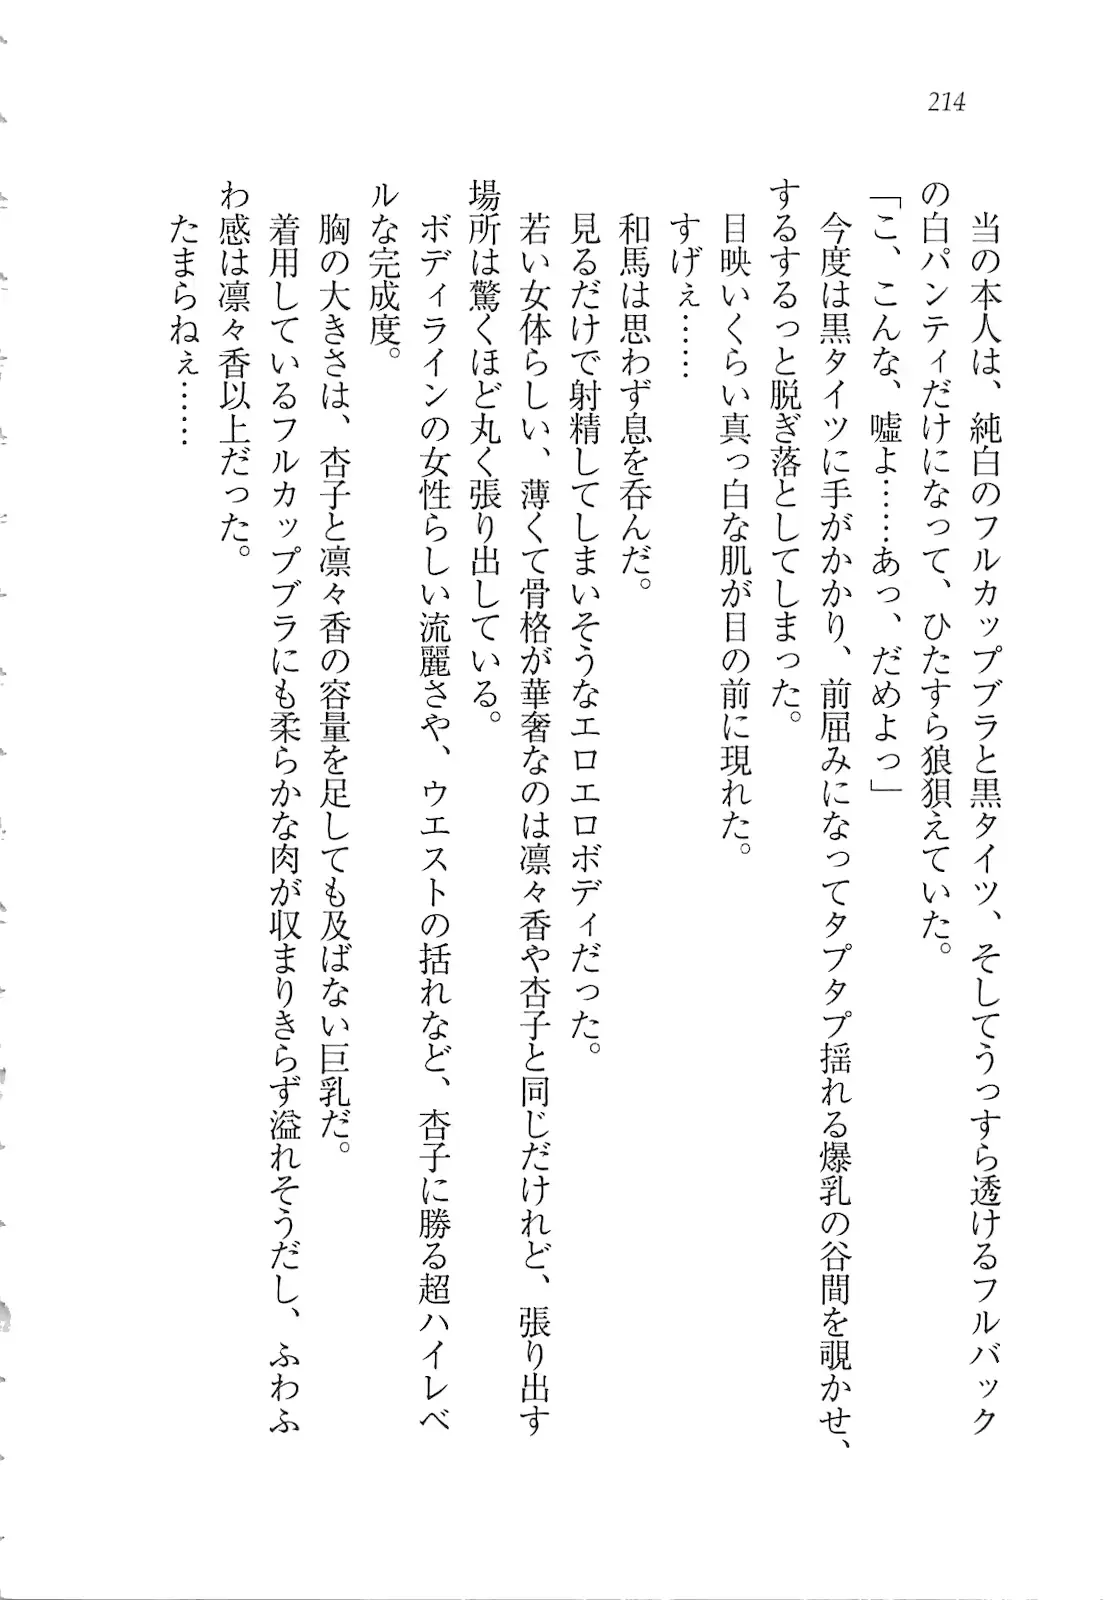 214
　当の本人は、純白のフルカップブラと黒タイツ、そしてうっすら透けるフルバック
の白パンティだけになって、ひたすら狼狽えていた。
「こ、こんな、嘘よ……あっ、だめよっ」
　今度は黒タイツに手がかかり、前屈みになってタプタプ揺れる爆乳の谷間を覗かせ、
するするっと脱ぎ落としてしまった。
　目映いくらい真っ白な肌が目の前に現れた。
　すげぇ……
　和馬は思わず息を呑んだ。
　見るだけで射精してしまいそうなエロエロボディだった。
　若い女体らしい、薄くて骨格が華奢なのは凛々香や杏子と同じだけれど、張り出す
場所は驚くほど丸く張り出している。
　ボディラインの女性らしい流麗さや、ウエストの括れなど、杏子に勝る超ハイレベ
ルな完成度。
　胸の大きさは、杏子と凛々香の容量を足しても及ばない巨乳だ。
　着用しているフルカップブラにも柔らかな肉が収まりきらず溢れそうだし、ふわふ
わ感は凛々香以上だった。
　たまらねぇ……